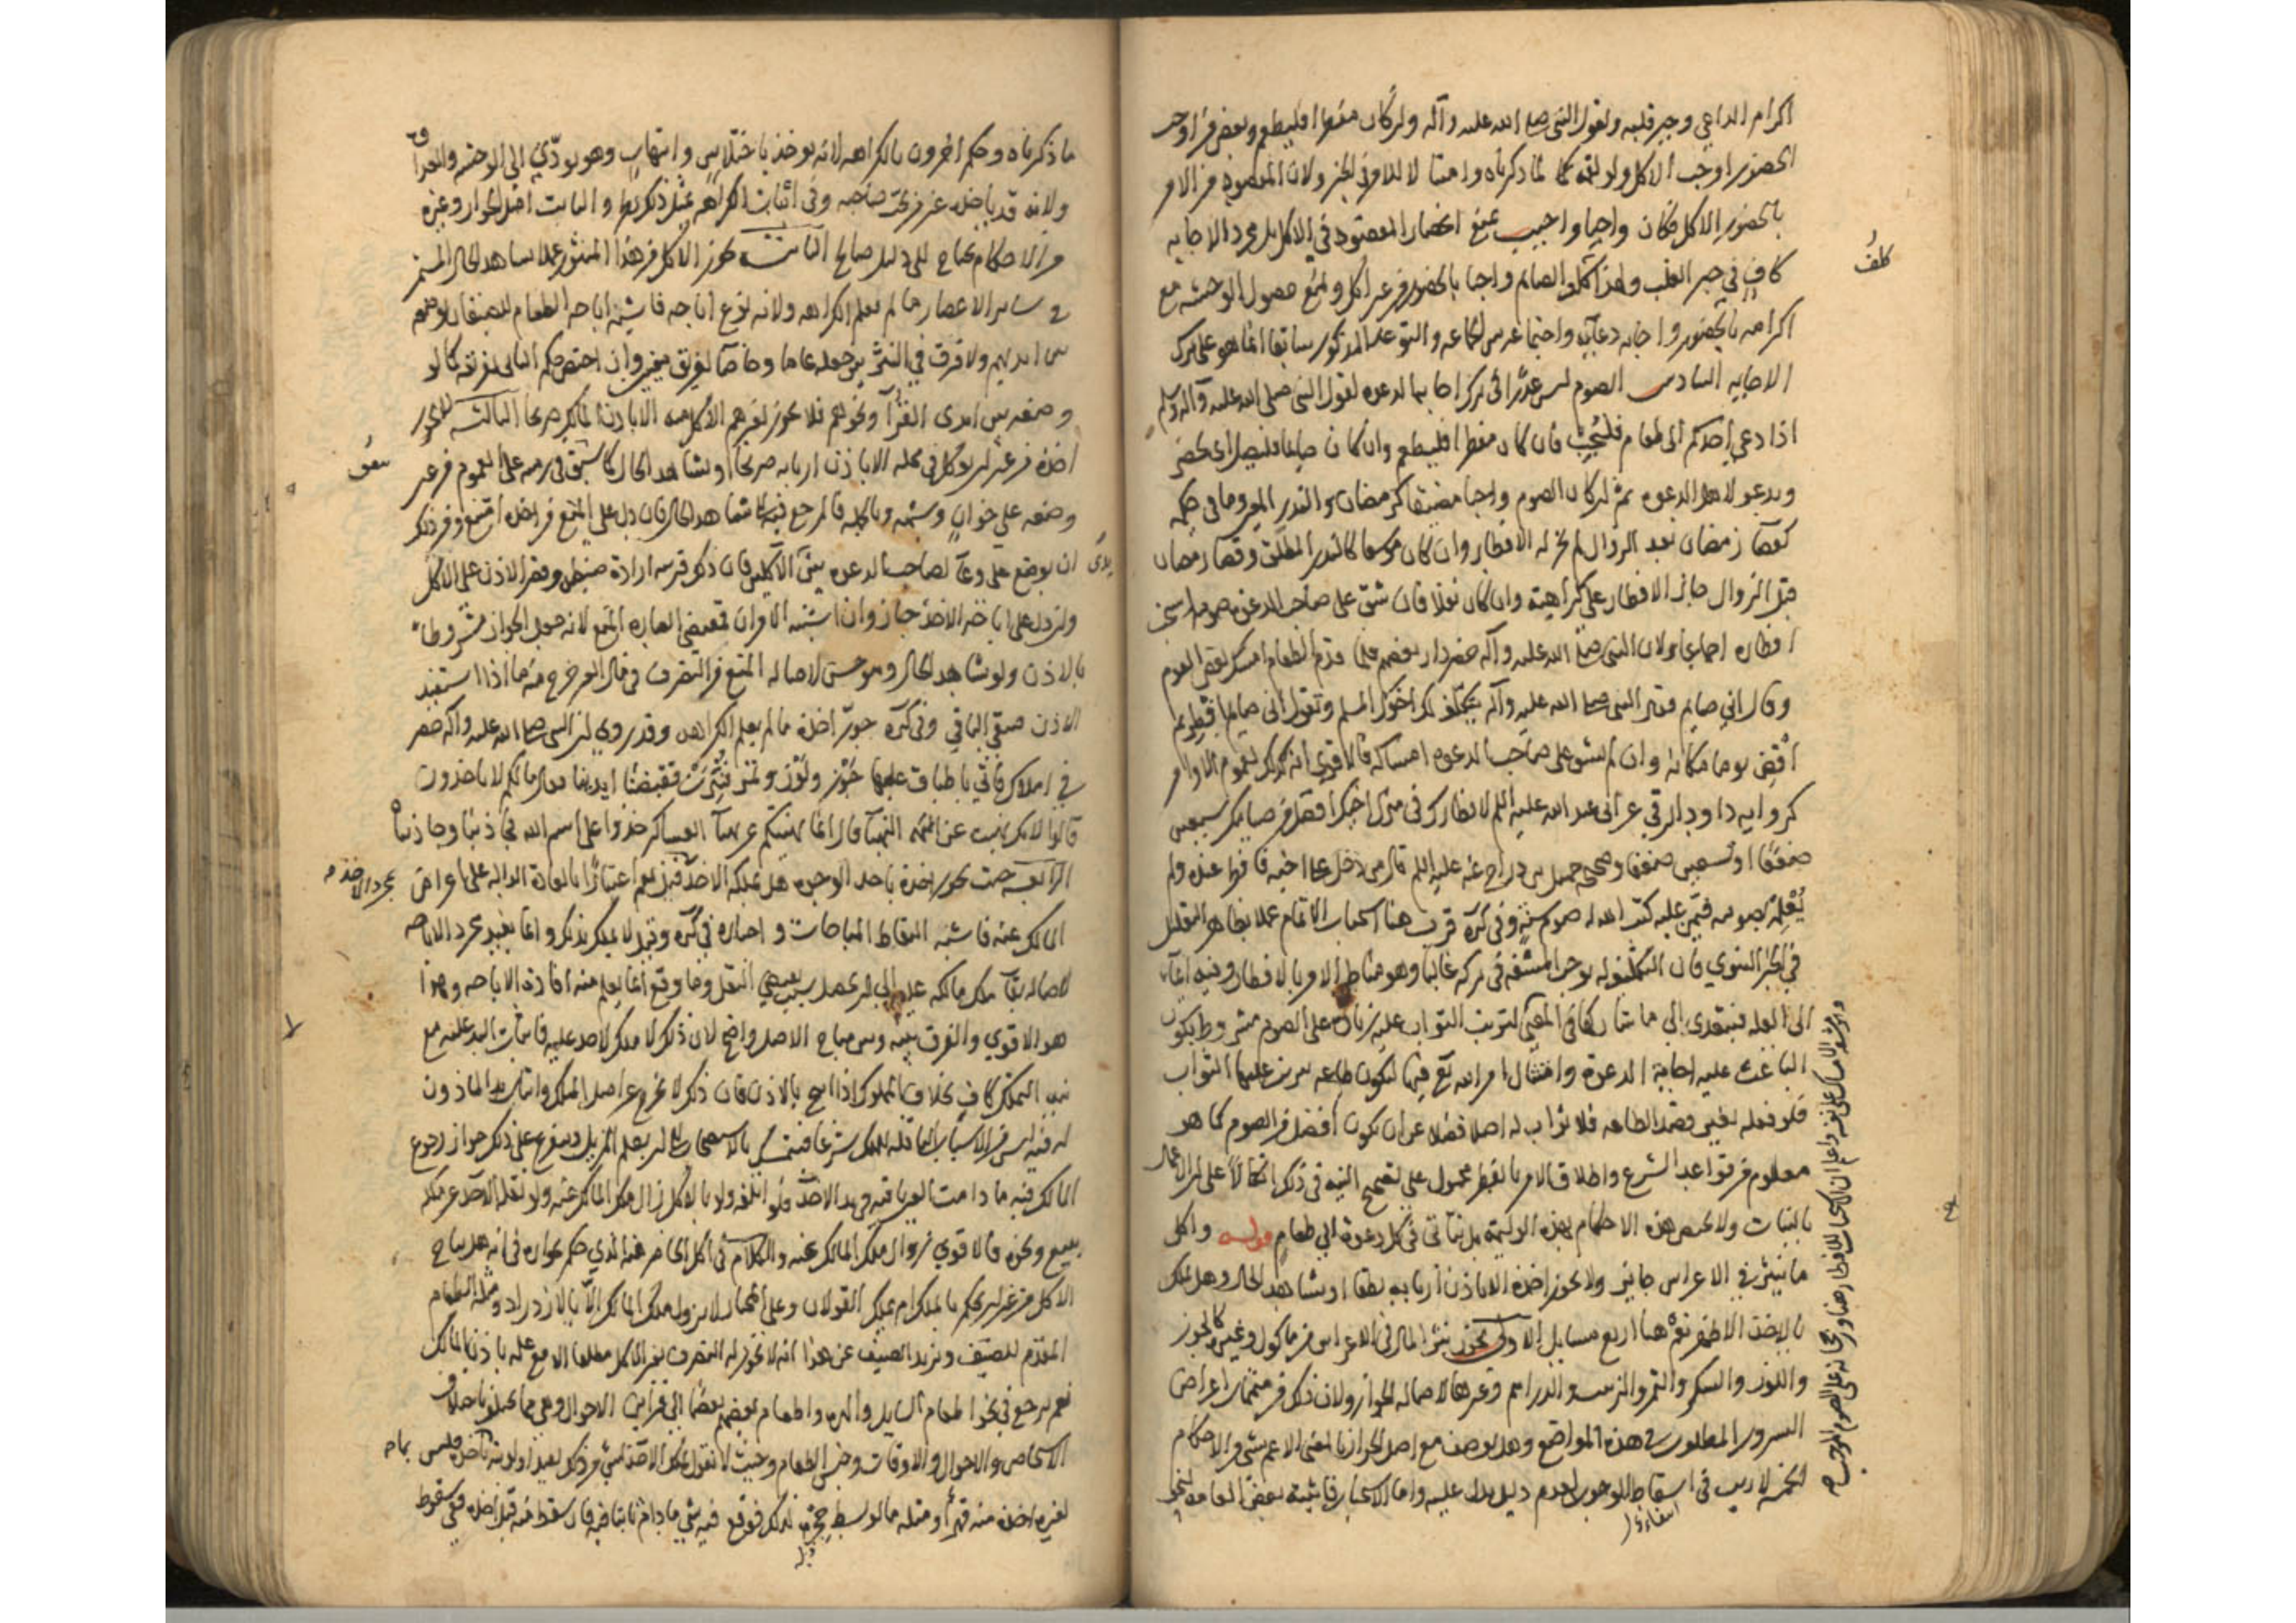 اكرام الداعي وجبر قلبه ولقول النبي صلى الله عليه وآله وان كان مفطرا فليطعم وبعض من اوجب
الحضور اوجب الاكل ولو لقمة لما ذكرناه وامتثالا للامر في الخبر ولان المقصود من الامر
بالحضور الاكل فكان واجبا واجيب بمنع انحصار المقصود في الاكل بل مجرد الاجابة
كاف في جبر القلب ولهذا كلف الصائم واجبا بالحضور من غير اكل ولمنع حصول الوحشة مع
اكرامه بالحضور واجابة دعائه واجتماعه مع الجماعة والتوعد المذكور سابقا انما هو على ترك
الاجابة السادس الصوم ليس عذرا في ترك اجابة الدعوة لقول النبي صلى الله عليه وآله وسلم
اذا دعي احدكم الى طعام فليجب فان كان مفطرا فليطعم وان كان صايما فليصل اي يحضر
ويدعو لاهل الدعوة ثم ان كان الصوم واجبا مضيقا كرمضان والنذر المعين وما في حكمه
كقضاء رمضان بعد الزوال لم يجز له الافطار وان كان موسعا كالنذر المطلق وقضاء رمضان
قبل الزوال جاز الافطار على كراهية وان كان نفلا فان شق على صاحب الدعوة صومه استحب
افطاره اجماعا ولان النبي صلى الله عليه وآله حضر دار بعضهم فلما قدم الطعام امسك بعض القوم
وقال اني صايم فقال النبي صلى الله عليه وآله يتكلف لك اخوك المسلم وتقول اني صايم افطر ثم
اقض يوما مكانه وان لم يشق على صاحب الدعوة امساكه فالاقوى انه كذلك لعموم الاوامر
كرواية داود الرقي عن ابي عبد الله عليه السلم لافطارك في منزل اخيك افضل من صيامك سبعين
ضعفا او تسعين ضعفا وصحيحة جميل بن دراج عنه عليه السلم قال من دخل على اخيه فافطر عنده ولم
يعلمه بصومه فيمن عليه كتب الله له صوم سنة وفي كره قرب هنا استحباب الاتمام عملا بظاهر التعليل
في الخبر النبوي فان التكلف له يوجب المشقة في تركه غالبا وهو مناط الامر بالافطار وفيه ايماء
الى العلة فيتعدى الى ما شاركها في المعنى لترتب الثواب عليه زيادة على الصوم مشروط بكون
الباعث عليه اجابة الدعوة وامتثال امر الله تع فيها ليكون طاعة يترتب عليها الثواب
فلو فعله بغير قصد الطاعة فلا ثواب له اصلا فضلا عن ان يكون افضل من الصوم كما هو
معلوم من قواعد الشرع واطلاق الامر بالفطر محمول على تصحيح النية في ذلك اتكالا على ان الاعمال
بالنيات ولا يختص هذه الاحكام بهذه الوليمة بل يتأتى في كل دعوة الى طعام قوله واكل
ما ينثر في الاعراس جايز ولا يجوز اخذه الا باذن اربابه نطقا او بشاهد الحال وهل يملك
بالاخذ الاظهر نعم هنا اربع مسايل الاولى يجوز نثر المال في الاعراس من مأكول وغيره كالجوز
واللوز والسكر والتمر والزبيب والدراهم وغيرها لاصالة الجواز ولان ذلك من متممات اغراض
السرور المطلوب في هذه المواضع وهل يوصف مع اصل الجواز بالمعنى الاعم بشيء من الاحكام
الخمسة لا ريب في اسقاط الوجوب لعدم دليل يدل عليه واما الاستحباب فاثبته بعض العامة لنحو
كلف
انتفاء
ما ذكرناه وحكم اخرون بالكراهة لانه يوخذ باختلاس وانتهاب وهو يودي الى الوحشة والعداوة
ولانه قد ياخذه غير من يحب صاحبه وفي اثبات الكراهة بمثل ذلك نظر والثابت اصل الجواز وغيره
من الاحكام يحتاج الى دليل صالح الثانية يجوز الاكل من هذا المنثور عملا بشاهد الحال المستمر
في ساير الاعصار ما لم يعلم الكراهة ولانه نوع اباحة فاشبه اباحة الطعام للضيفان بوضعه
بين ايديهم ولا فرق في النثر بين جعله عاما وخاصا لفريق معين وان اختص حكم الثاني بفريقه كما لو
وضعه بين ايدي القراء ونحوهم فلا يجوز لغيرهم الاكل منه الا باذن المالك صريحا الثالثة لا يجوز
اخذه من غير ان يوكل في محله الا باذن اربابه صريحا او بشاهد الحال كما سبق في رميه على العموم من غير
وضعه على خوان وشبهه وبالجملة فالمرجع فيه الى شاهد الحال فان دل على المنع من اخذه امتنع ومن ذلك
ان يوضع على وعاء لصاحب الدعوة بين يدي الآكلين فان ذلك قرينة ارادة ضبطه وقصر الاذن على الاكل
وان دل على اباحة الاخذ جاز وان اشتبه الامران فمقتضى العبارة المنع لانه جعل الجواز مشروطا
بالاذن ولو بشاهد الحال وهو حسن لاصالة المنع من التصرف في مال الغير خرج منه ما اذا استفيد
الاذن فبقي الباقي وفي كره جوز اخذه ما لم يعلم الكراهة وقد روي ان النبي صلى الله عليه وآله حضر
في املاك فاتي باطباق عليها جوز ولوز وتمر فنثرت فقبضنا ايدينا فقال ما لكم لا تاخذون
قالوا لانك نهيت عن النهب قال انما نهيتكم عن نهب العساكر خذوا على اسم الله فجاذبنا وجاذبناه
الرابعة حيث يجوز اخذه باحد الوجوه هل يملكه الاخذ قيل نعم اعتبارا بالعادة الدالة على اعراض
المالك عنه فاشبه التقاط المباحات واختاره في كره وقيل لا يملك بذلك وانما يفيد مجرد الاباحة
لاصالة بقاء ملك مالكه عليه الى ان يحصل سبب يقتضي النقل وما وقع انما يعلم منه افادة الاباحة وهذا
هو الاقوى والفرق بينه وبين مباح الاصل واضح لان ذلك لا ملك لاحد عليه فاثبات اليد عليه مع
نية التملك كاف بخلاف المملوك اذا ابيح بالاذن فان ذلك لا يخرج عن اصل الملك واثبات يد الماذون
له فيه ليس من الاسباب الناقلة للملك شرعا فيتمسك بالاستصحاب الى ان يعلم المزيل ويتفرع على ذلك جواز رجوع
المالك فيه ما دامت العين باقية في يد الاخذ ولو اتلفه ولو بالاكل زال ملك المالك عنه ولو نقله الاخذ عن ملكه
ببيع ونحوه فالاقوى زوال ملك المالك عنه والكلام في اكل الحاضر عنه الذي حكم بجوازه في انه هل يباح
الاكل من غير ان يحكم بالملك ام يملك القولان وعلى المختار لا يزول ملك المالك الا بالازدراد ومثله الطعام
المقدم للضيف ويزيد الضيف عن هذا انه لا يجوز له التصرف بغير الاكل مطلقا الا مع علمه باذن المالك
نعم يرجع في نحو اطعام السايل والهرة واطعام بعضهم بعضا الى قراين الاحوال وهي مما يختلف باختلاف
الاشخاص والاحوال والاوقات وجنس الطعام وحيث لا نقول بملك الاخذ لشيء من ذلك يفيد اولوية بأخذه فليس
لغيره اخذه منه قهرا ومثله ما لو بسط حجره لذلك فوقع فيه شيء ما دام ثابتا فيه فان سقط منه قبل اخذه ففي سقوط
بمجرد الاخذ